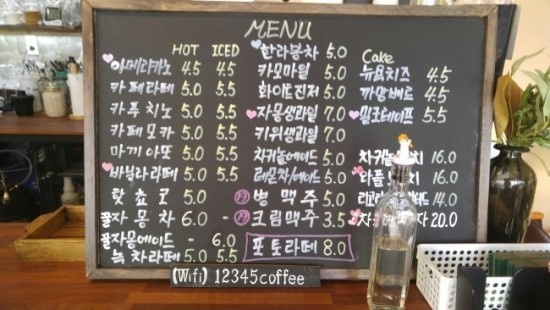 MENU
HOT ICED
아메리카노 4.5 4.5
카페라떼 5.0 5.5
카푸치노 5.0 5.5
카페모카 5.0 5.5
마끼아또 5.0 5.5
바닐라라떼 5.0 5.5
핫쵸코 5.0
꿀자몽차 6.0 -
꿀자몽에이드 - 6.0
녹차라떼 5.0 5.5
한라봉차 5.0
카모마일 5.0
화이트진저 5.0
자몽생과일 7.0
키위생과일 7.0
자귀놀에이드 5.0
레몬차/에이드 5.0
병맥주 5.0
크림맥주 3.5
포토라떼 8.0
Cake
뉴욕치즈 4.5
까망베르 4.5
밀크테이프 5.5
16.0
와플 16.0
14.0
20.0
(Wifi) 12345coffee